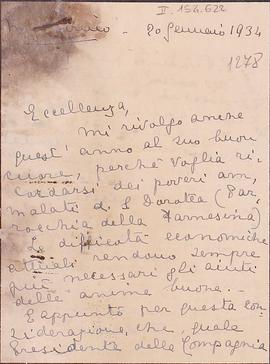 II. 154.622
20 gennaio 1934
1278
Eccellenza,
mi rivolgo anche
quest' anno al suo buon
cuore, perchè voglia ri-
cordarsi dei poveri am-
malati di S. Dorotea (Par-
rocchia della Farnesina)
Le difficoltà economiche
attuali rendono sempre
più necessari gli aiuti
delle anime buone.
È appunto per questa con-
siderazione, che, quale
Presidente della Compagnia